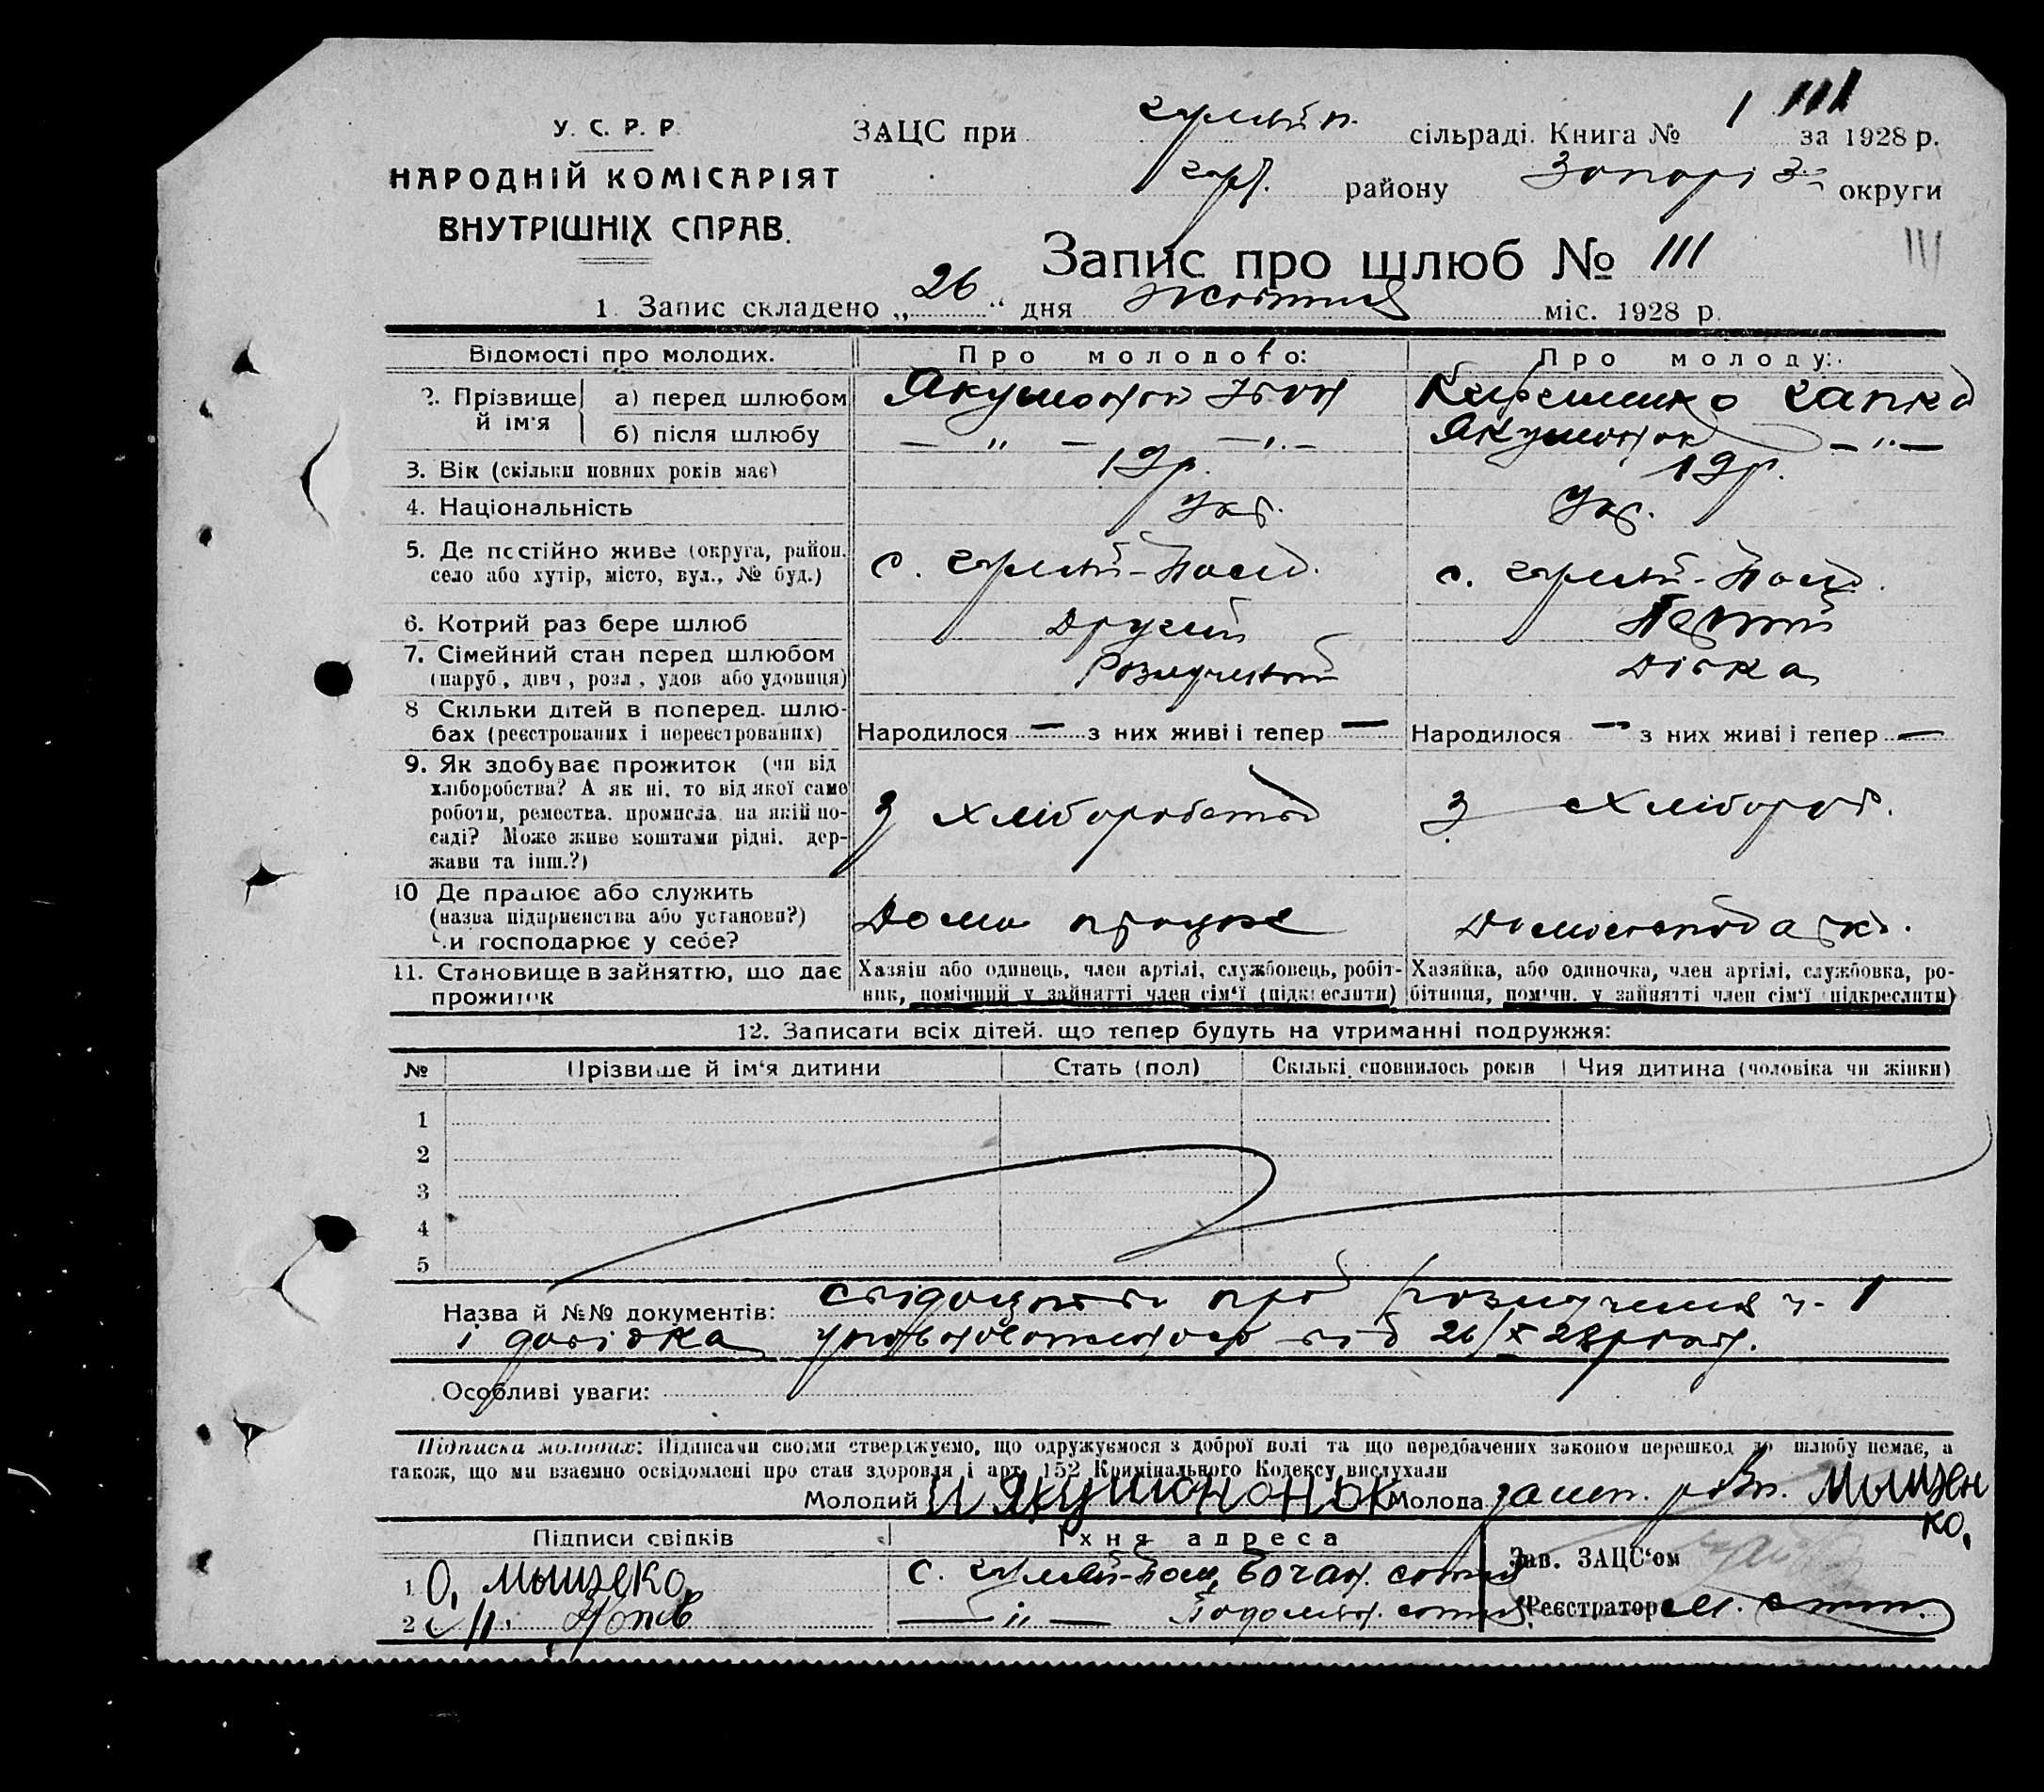 У. С. Р. Р.
НАРОДНІЙ КОМІСАРІЯТ
ВНУТРІШНІХ СПРАВ.
ЗАЦС при сільраді. Книга № 1 111 за 1928 р.
району Запоріз округи
Запис про шлюб № 111
111
1. Запис складено „ 26 “ дня жовтня міс. 1928 р.
Відомості про молодих. Про молодого: Про молоду:
2. Прізвище й ім'я а) перед шлюбом Якушонок Іван Гапка
б) після шлюбу — " — — " — Якушонок — " —
3. Вік (скільки повних років має) 19р. 19р.
4. Національність Укр. Укр.
5. Де постійно живе (округа, район, село або хутір, місто, вул., № буд.) с. Гуляй-Поле. с. Гуляй-Поле.
6. Котрий раз бере шлюб Другий Первий
7. Сімейний стан перед шлюбом (паруб., дівч., розл., удов або удовиця) Розлучений Дівка
8 Скільки дітей в поперед. шлюбах (реєстрованих і нереєстрованих) Народилося — з них живі і тепер — Народилося — з них живі і тепер —
9. Як здобуває прожиток (чи від хліборобства? А як ні, то від якої саме роботи, ремества, промисла, на якій посаді? Може живе коштами рідні, держави та інш.?) З хліборобства З хлібороб.
10 Де працює або служить (назва підприємства або установи?) Чи господарює у себе? Дома працює Домогосподарка.
11. Становище в зайняттю, що дає прожиток Хазяїн або одинець, член артілі, службовець, робітник, помічний у зайнятті член сім'ї (підкреслити) Хазяйка, або одиночка, член артілі, службовка, робітниця, поміч. у зайнятті член сім'ї (підкреслити)
12. Записати всіх дітей, що тепер будуть на утриманні подружжя:
№ Прізвище й ім'я дитини Стать (пол) Скількі сповнилось років Чия дитина (чоловіка чи жінки)
1
2
3
4
5
Назва й №№ документів: свідоцтво про розлучення ч. 1
і довідка від 26/X 28 року.
Особливі уваги:
Підписка молодих: Підписами своїми стверджуємо, що одружуємося з доброї волі та що передбачених законом перешкод до шлюбу немає, а
також, що ми взаємно освідомлені про стан здоровля і арт. 152 Кримінального Кодексу вислухали
Молодий И Якушононок Молода за неп. Мышзен
ко.
Підписи свідків Їхня адреса Зав. ЗАЦС'ом
1 О. Мышзеко. с. Гуляй-Поле, Бочан. сотня
2 — " — Подолян. сотня Реєстратор